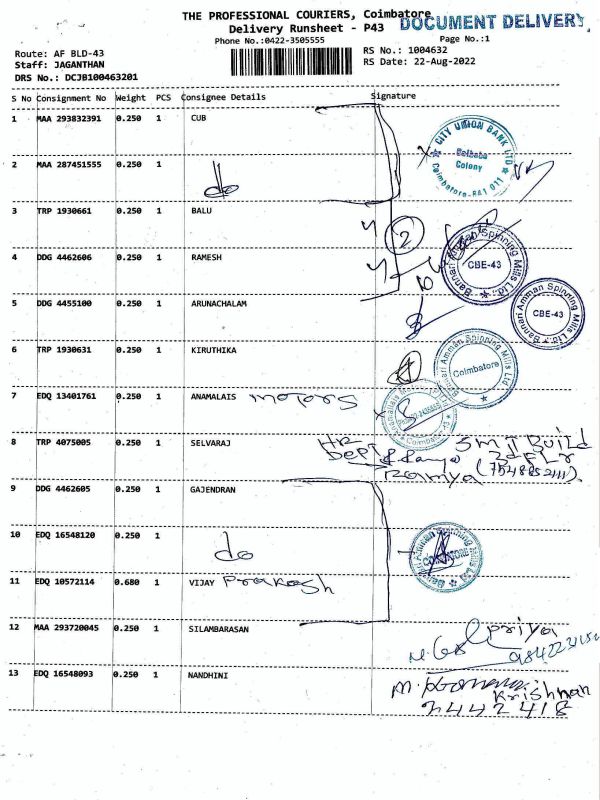 THE PROFESSIONAL COURIERS, Coimbatore
DOCUMENT DELIVERY
Delivery Runsheet - P43
Phone No.:0422-3505555
Page No.:1
Route: AF BLD-43
RS No.: 1004632
Staff: JAGANTHAN
RS Date: 22-Aug-2022
DRS No.: DCJB100463201
S No Consignment No Weight PCS Consignee Details Signature
1 MAA 293832391 0.250 1 CUB
CITY UNION BANK LTD
Colony
2 MAA 287451555 0.250 1
do
Coimbatore
3 TRP 1930661 0.250 1 BALU
2
4 DDG 4462606 0.250 1 RAMESH
Bannari Amman Spinning Mills Ltd
CBE-43
5 DDG 4455100 0.250 1 ARUNACHALAM
Bannari Amman Spinning Mills Ltd
CBE-43
6 TRP 1930631 0.250 1 KIRUTHIKA
Bannari Amman Spinning Mills Ltd
Coimbatore
7 EDQ 13401761 0.250 1 ANAMALAIS motors
8 TRP 4075005 0.250 1 SELVARAJ
HR Dept
Build
Ramya
9 DDG 4462605 0.250 1 GAJENDRAN
10 EDQ 16548120 0.250 1 do
Bannari Amman Spinning Mills Ltd
COIMBATORE
11 EDQ 10572114 0.680 1 VIJAY Prakash
12 MAA 293720045 0.250 1 SILAMBARASAN
priya
13 EDQ 16548093 0.250 1 NANDHINI
Krishnan
2442418